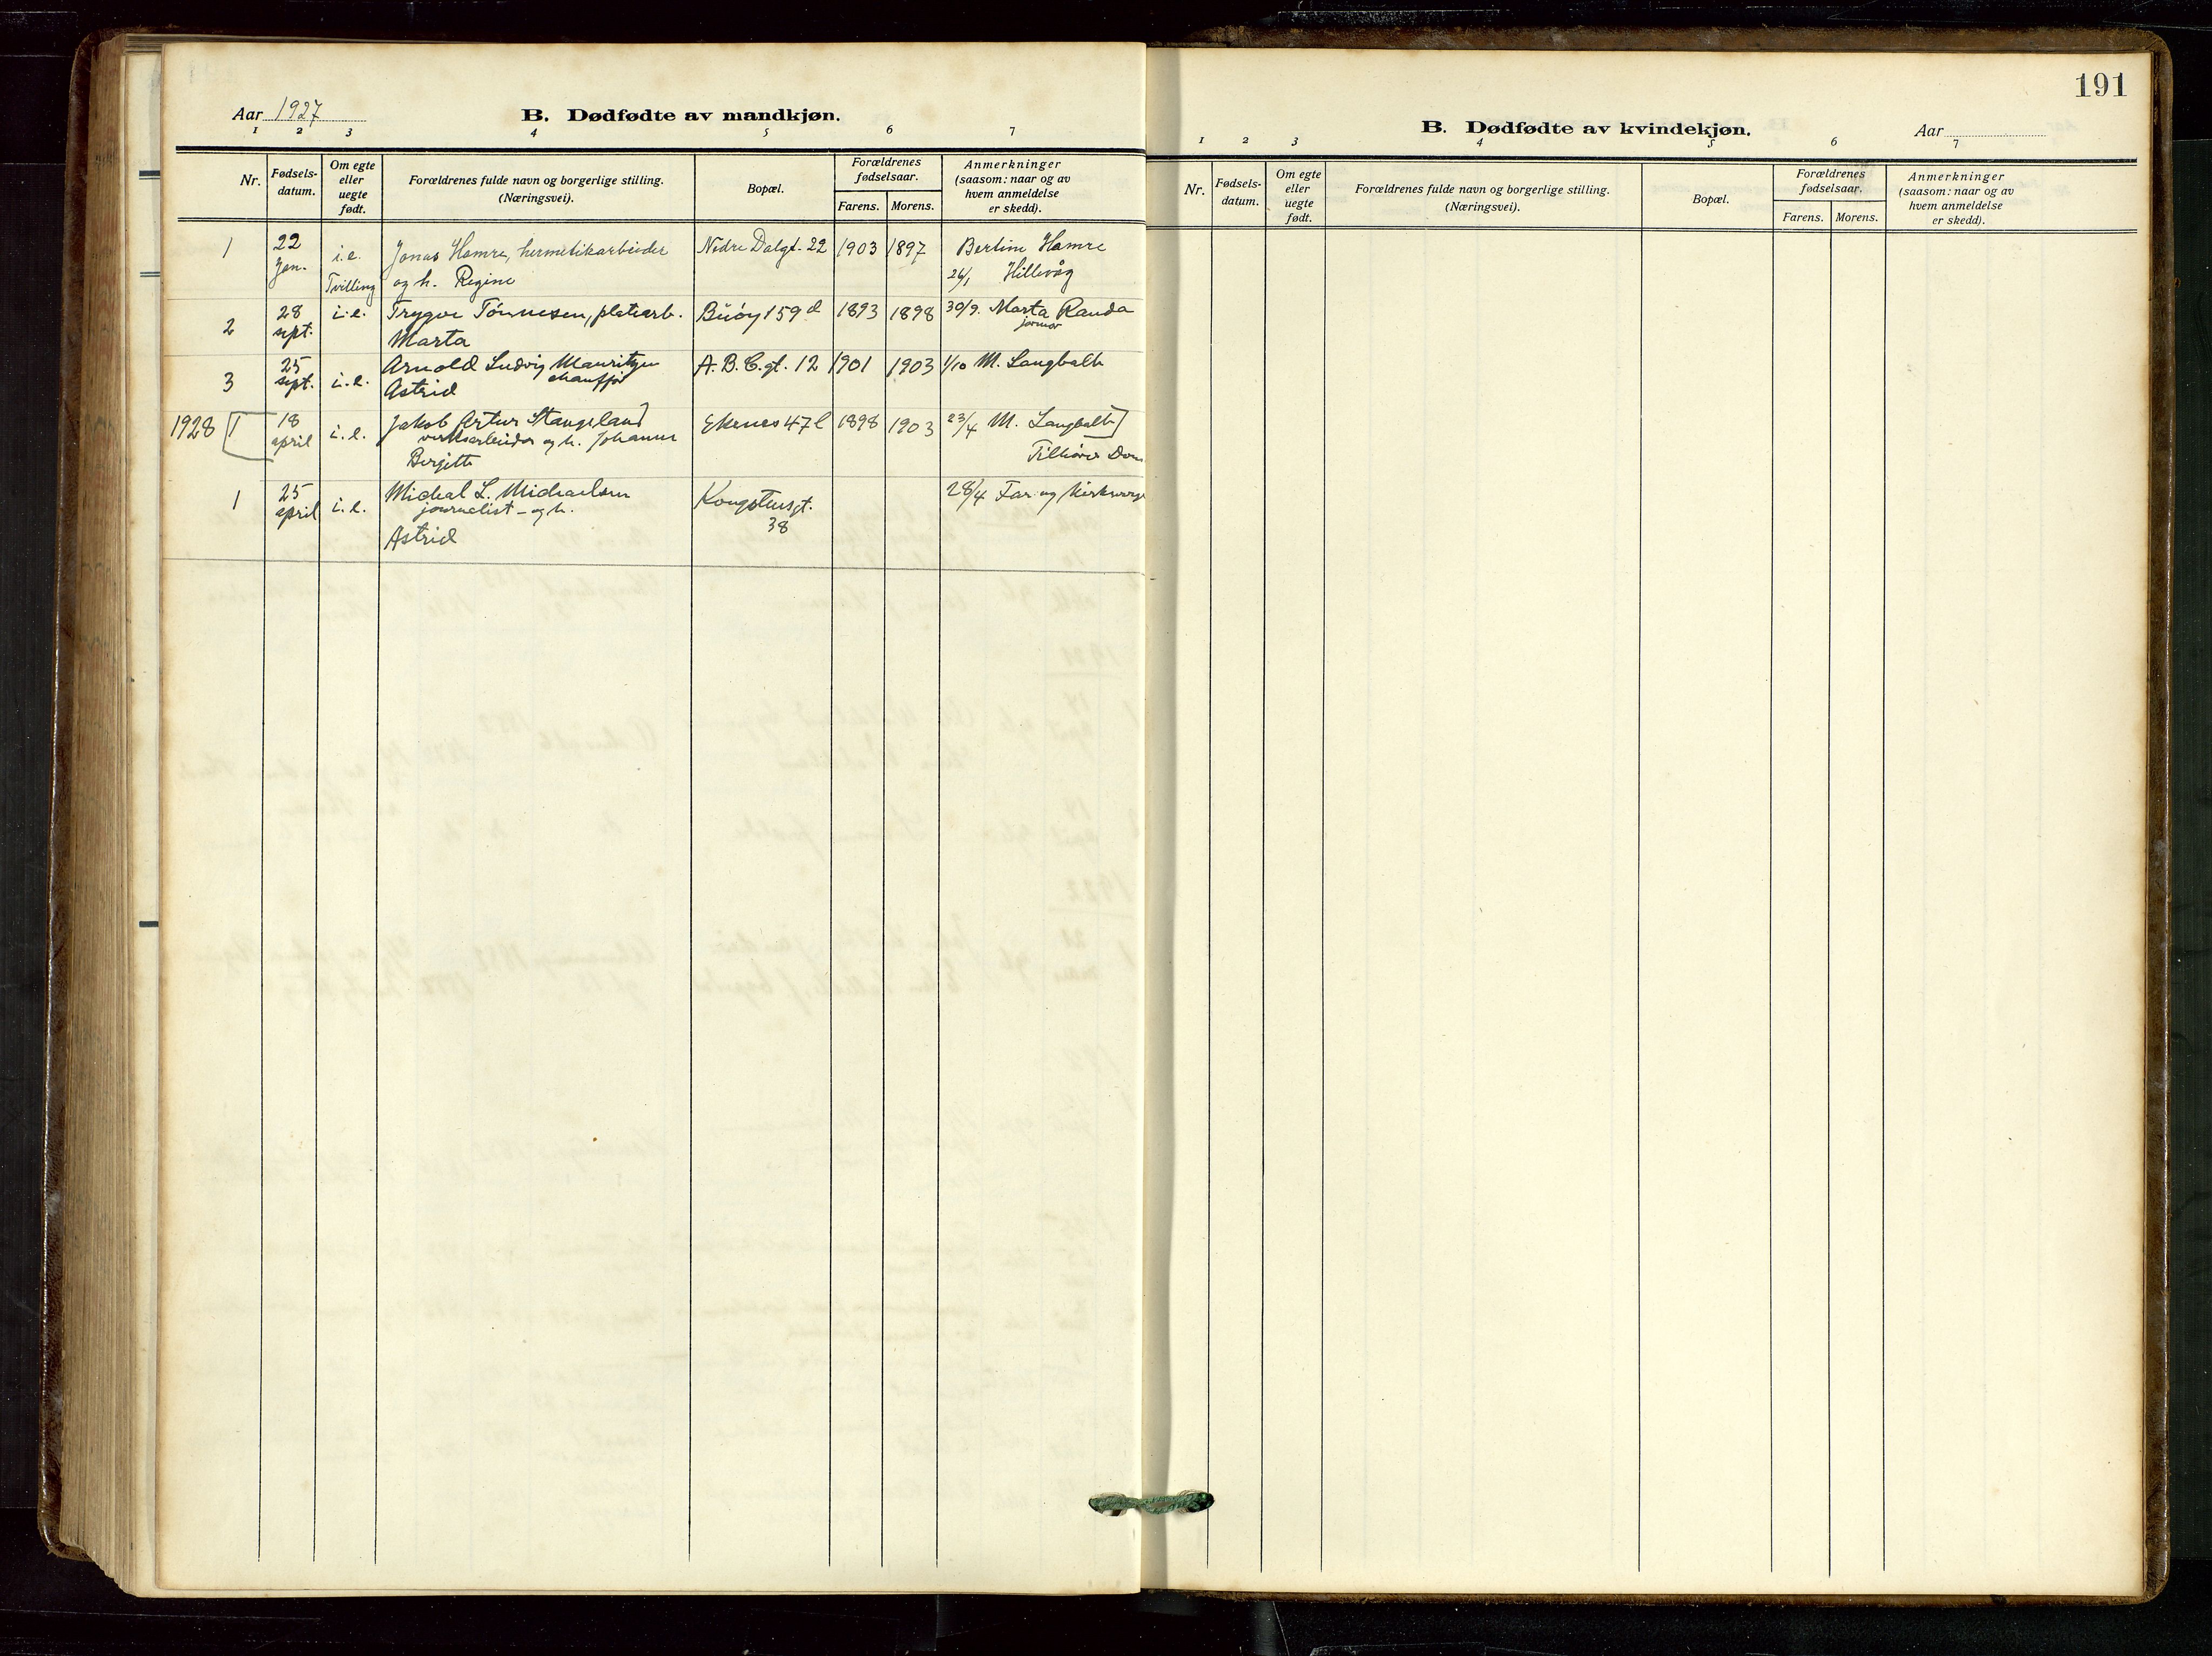 Aar 1927
B. Dødfødte av mandkjøn.
1 2 3 4 5 6 7
Nr.
Fødsels-
datum.
Om egte
eller
uegte
født.
Forældrenes fulde navn og borgerlige stilling.
(Næringsvei).
Bopæl.
Forældrenes
fødselsaar.
Farens. Morens.
Anmerkninger
(saasom: naar og av
hvem anmeldelse
er skedd).
1 22 i.e. Jonas Hamre, hermetikarbeider Nedre Dalgt. 22 1903 1897 Bertine Hamre
Jan. Tvilling og h. Regine 26/1 Hillevåg
2 28 i.e. Trygve Tönnesen, platearb. Buöy 159 d 1893 1898 30/9. Marta Randa
sept. Marta jormor
3 25 i.e. Arnold Ludvig Mauritzen A.B.C.gt. 12 1901 1903 1/10 M. Langbalh
sept. Astrid chauffør
1928 [1 18 i.e. Jakob Artur Stangeland Ekenes 47 l 1898 1903 23/4 M. Langbalh]
april verksarbeider og h. Johanne
Bergitte Tilhører Dom
1 25 i.e. Michal L. Michaelsen Kongstensgt. 28/4 Far og
april journalist - og h. 38
Astrid
191
B. Dødfødte av kvindekjøn.
Aar
1 2 3 4 5 6 7
Nr.
Fødsels-
datum.
Om egte
eller
uegte
født.
Forældrenes fulde navn og borgerlige stilling.
(Næringsvei).
Bopæl.
Forældrenes
fødselsaar.
Farens. Morens.
Anmerkninger
(saasom: naar og av
hvem anmeldelse
er skedd).